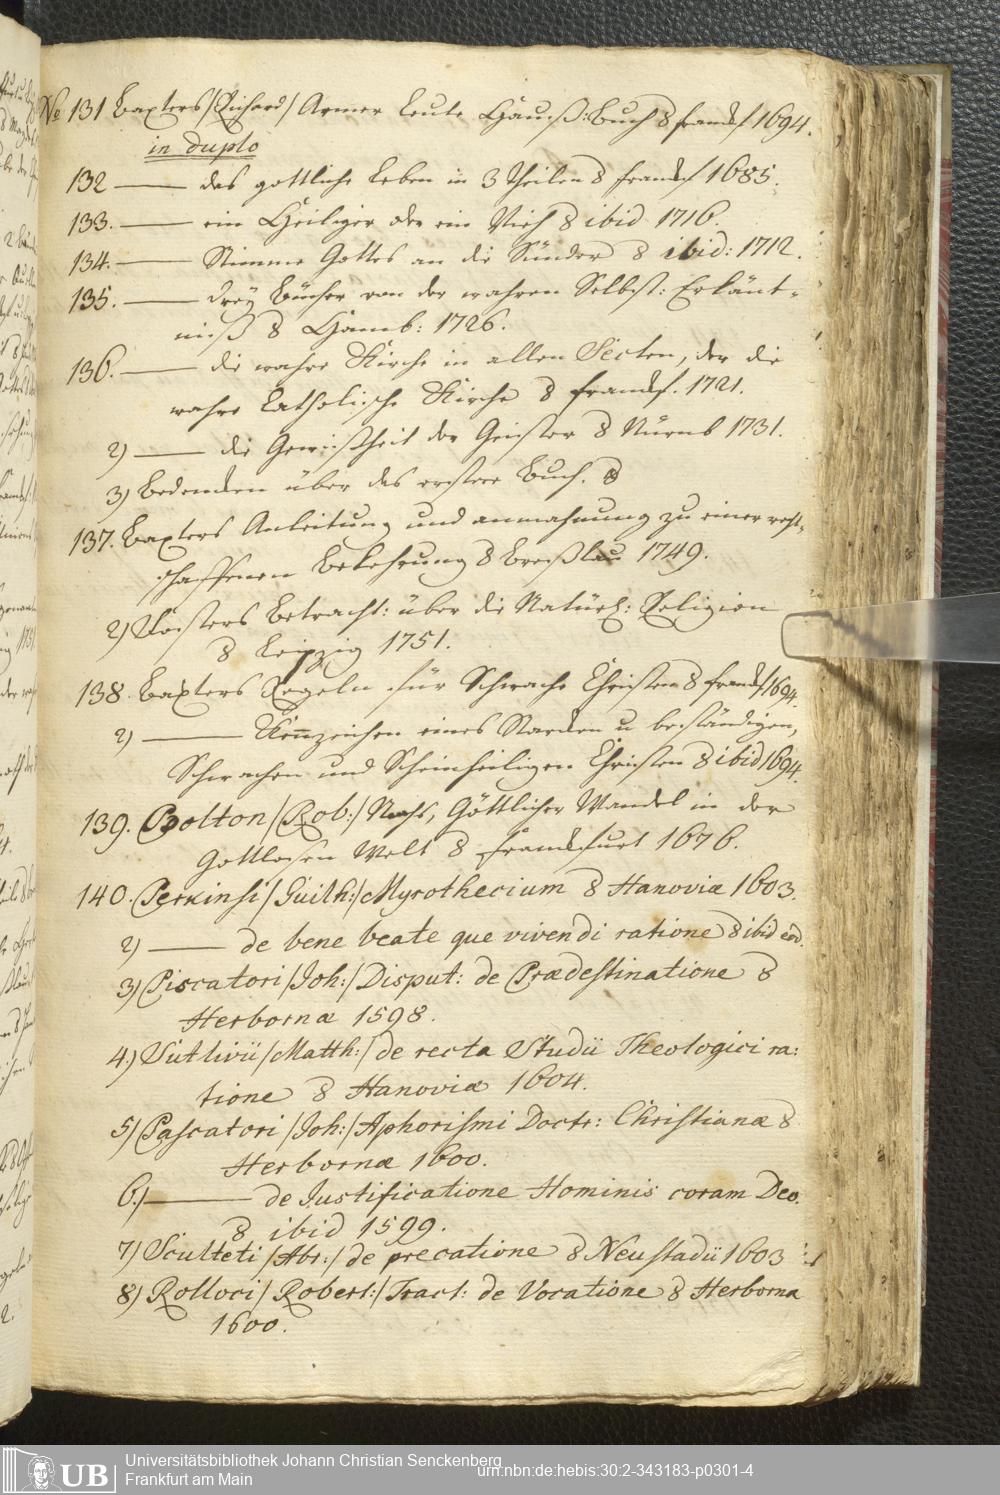 No 131 Baxters /Richard/ Armer Leute Hauß-Buch 8 Francf 1694.
in duplo
132 —— das göttliche Leben in 3 Theilen 8 Francf 1685.
133. —— ein Heiliger oder ein Vieh 8 ibid 1716.
134. —— Stimme Gottes an die Sünder 8 ibid: 1712.
135. —— Drey Bücher von der wahren Selbst: Erkänt-
niß 8 Hamb: 1726.
136. —— die wahre Kirche in allen Secten, der die
wahre Catholische Kirche 8 Francf. 1721.
2) —— die Gewißheit der Geister 8 Nürnb 1731.
3) Bedencken über das erstere Buch. 8
137. Baxters Anleitung und anmahnung zu einer recht-
schaffenen Bekehrung 8 Breßlau 1749.
2) Fosters Betracht: über die Natürl: Religion
8 Leipzig 1751.
138. Baxters Regeln für Schwache Christen 8 Francf 1694.
2) —— Kennzeichen eines Starcken u beständigen,
Schwachen und Scheinheiligen Christen 8 ibid 1694.
139. Bolton /Rob:/ Göttlicher Wandel in der
Gottlosen Welt 8 Franckfurt 1676.
140. Perkinsi /Guilh:/ Myrothecium 8 Hanoviæ 1603.
2) —— de bene beate que vivendi ratione 8 ibid eod.
3) Piscatori /Joh:/ Disput: de Prædestinatione 8
Herbornæ 1598.
4) Sutlivii /Matth:/ de recta Studii Theologici ra:
tione 8 Hanoviæ 1604.
5) Pascatori /Joh:/ Aphorismi Doctr: Christianæ 8
Herbornæ 1600.
6.) —— de Justificatione Hominis coram Deo.
8 ibid 1599.
7) Sculteti /Abr:/ de precatione 8 Neustadii 1603
8) Rolloci /Robert:/ Tract: de Vocatione 8 Herbornæ
1600.
UB
Universitätsbibliothek Johann Christian Senckenberg
Frankfurt am Main
urn:nbn:de:hebis:30:2-343183-p0301-4